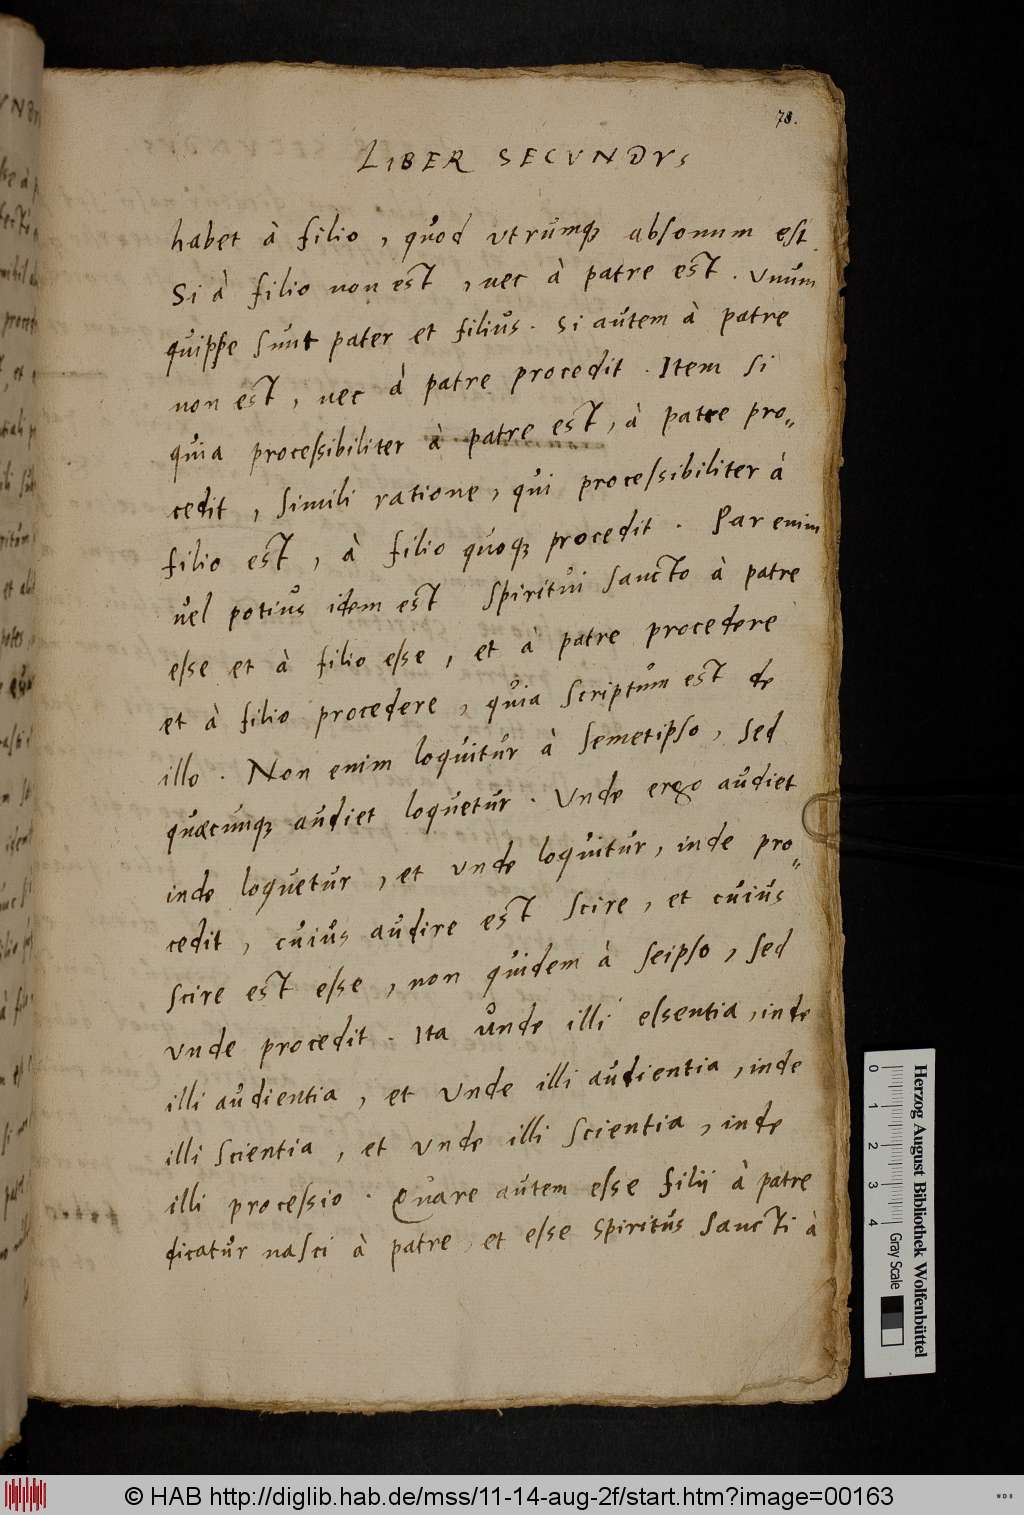 78.
LIBER SECVNDVS
habet à filio, quod vtrumq; absonum est.
Si à filio non est, nec à patre est. Vnum
quippe sunt pater et filius. Si autem à patre
non est, nec à patre procedit. Item si
quia processibiliter à patre est, à patre pro„
cedit, simili ratione, qui processibiliter à
filio est, à filio quoq; procedit. Par enim
vel potius idem est Spiritui sancto à patre
esse et à filio esse, et à patre procedere
et à filio procedere, quia scriptum est de
illo. Non enim loquitur à semetipso, sed
quæcunq; audiet loquetur. Vnde ergo audiet
inde loquetur, et vnde loquitur, inde pro„
cedit, cuius audire est scire, et cuius
scire est esse, non quidem à seipso, sed
vnde procedit. Ita unde illi essentia, inde
illi audientia, et vnde illi audientia, inde
illi scientia, et vnde illi scientia, inde
illi processio. Quare autem esse filij à patre
dicatur nasci à patre, et esse Spiritus sancti à
0 1 2 3 4 Gray Scale
Herzog August Bibliothek Wolfenbüttel
© HAB http://diglib.hab.de/mss/11-14-aug-2f/start.htm?image=00163